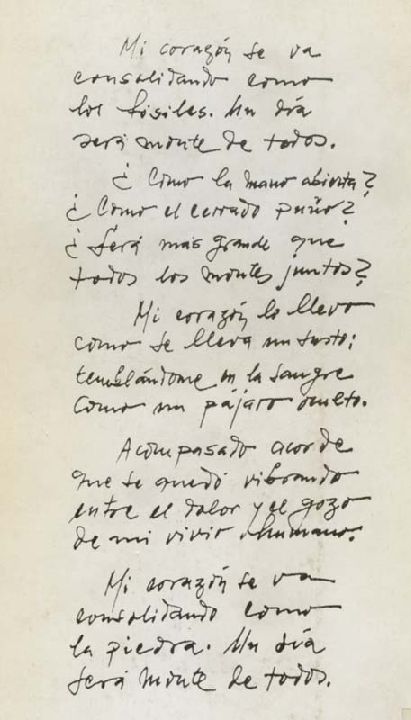 Mi corazón se va
consolidando como
los fósiles. Un día
será monte de todos.
¿Como la mano abierta?
¿Como el cerrado puño?
¿Será más grande que
todos los montes juntos?
Mi corazón lo llevo
como se lleva un susto:
temblándome en la sangre
como un pájaro oculto.
Acompasado acorde
que se quedó vibrando
entre el dolor y el gozo
de mi vivir humano.
Mi corazón se va
consolidando como
la piedra. Un día
será monte de todos.